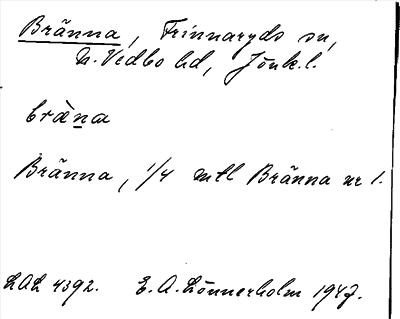 Bränna, Frinnaryds sn,
N. Vedbo hd, Jönk. l.
bræ̀na
Bränna, 1/4 mtl Bränna nr 1.
LAL 4392. E. A. Lönnerholm 1947.